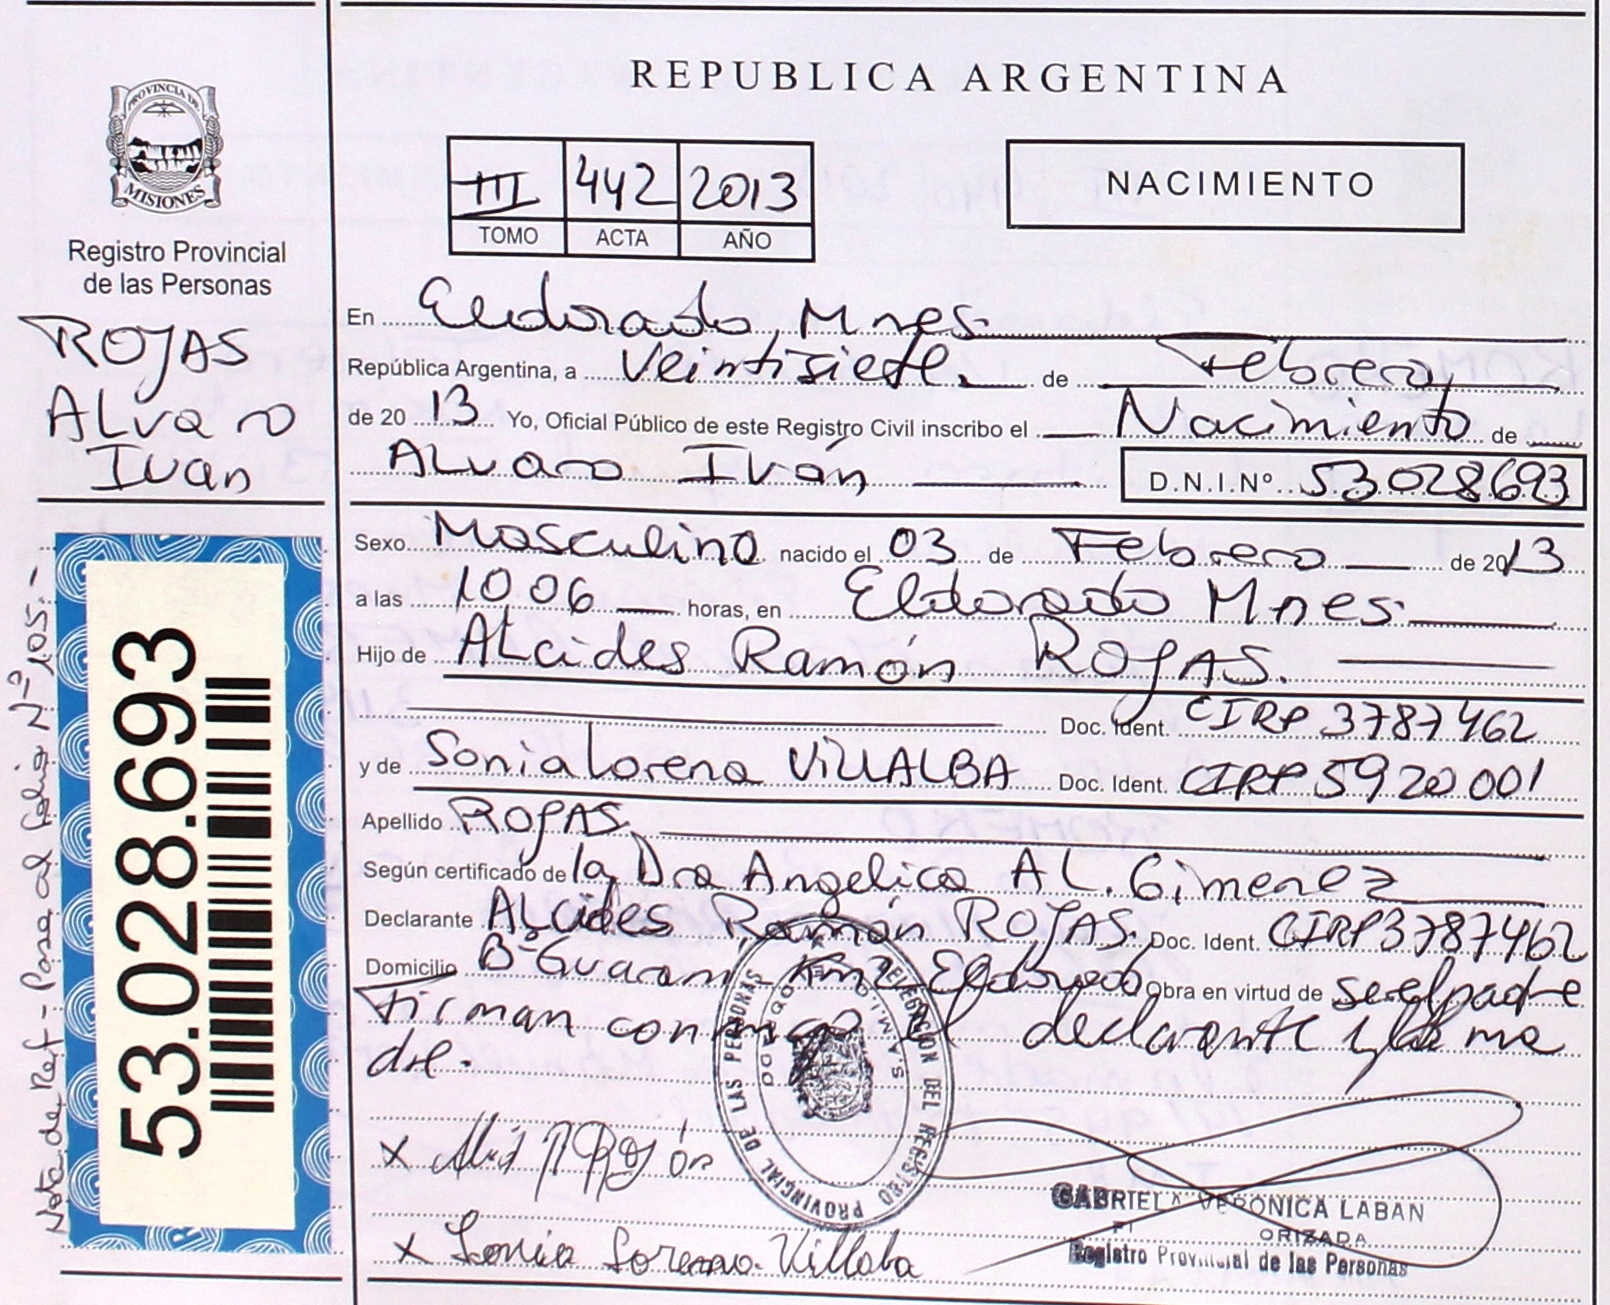 REPUBLICA ARGENTINA
PROVINCIA DE
MISIONES
Registro Provincial
de las Personas
ROJAS
ALvaro
Ivan
Nota de Ref - Pasa al folio Nº 105.-
53.028.693
III 442 2013
TOMO ACTA AÑO
NACIMIENTO
En Eldorado, Mnes.
República Argentina, a Veintisiete. de Febrero,
de 20 13 Yo, Oficial Público de este Registro Civil inscribo el Nacimiento de
ALvaro Iván D.N.I.Nº 53028693
Sexo Masculino nacido el 03 de Febrero de 2013
a las 10 06 horas, en Eldorado Mnes.
Hijo de ALcides Ramón ROJAS.
Doc. Ident. CIRP 3787462
y de Sonia Lorena ViLLALBA Doc. Ident. CIRP 5920001
Apellido ROJAS
Según certificado de la Dra Angelica AL. Gimenez
Declarante ALcides Ramón ROJAS. Doc. Ident. CIRP3787462
Domicilio Bº Guarani Km2 Eldorado Obra en virtud de ser el padre
Firman conmigo el declarante y la ma
dre.
DELEGACION DEL REGISTRO PROVINCIAL DE LAS PERSONAS
x
x Sonia Lorena Villalba
GABRIELA VERONICA LABAN
ORIZADA
Registro Provincial de las Personas